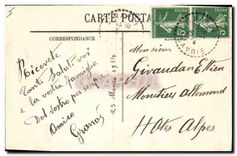 CARTE POSTA
CORRESPONDANCE
Ricevete
tanti Saluti voi
e la vostra famiglia
Dal vostro per sempre
Amico
23 Mars 1914
Monsieur
Givaudan Ellien
Monêtier Allemond
Htes Alpes